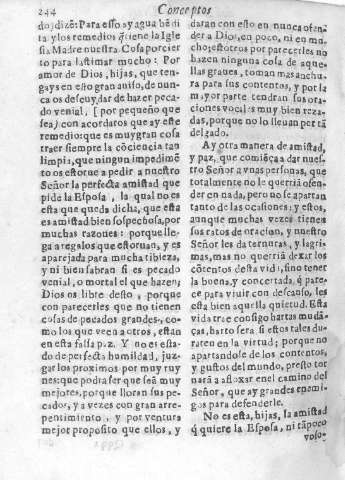 244
Conceptos
do, dizē: Para esso ay agua bēdi
ta y los remedios q̃ tiene la Igle
sia Madre nuestra. Cosa por cier
to para lastimar mucho: Por
amor de Dios, hijas, que ten-
gays en esto gran auiso, de nun-
ca os descuydar de hazer peca-
do venial, [por pequeño que
sea) con acordaros que ay este
remedio: que es muy gran cosa
traer siempre la cōciencia tan
limpia, que ningun impedimē
to os estorue a pedir a nuestro
Señor la perfecta amistad que
pide la Esposa, la qual no es
esta que queda dicha, que esta
es amistad bien sospechosa, por
muchas razones: porque lle-
ga a regalos que estoruan, y es
aparejada para mucha tibieza,
y ni bien sabran si es pecado
venial, o mortal el que hazen;
Dios os libre desto, porque
con parecerles que no tienen
cosas de pecados grandes, co-
mo los que veen a otros, estan
en esta falsa paz. Y no es esta-
do de perfecta humildad, juz-
gar los proximos por muy ruy
nes: que podra ser que seā muy
mejores, porque lloran sus pe-
cados, y a vezes con gran arre-
pentimiento, y por ventura
mejor proposito que ellos, y
daran con esto en nunca ofen-
der a Dios, en poco, ni en mu-
cho; estotros por parecerles no
hazen ninguna cosa de aque-
llas graues, toman mas anchu-
ra para sus contentos, y por la
m. yor parte tendran sus ora-
ciones vocales muy bien reza-
das, porque no lo lleuan por tā
delgado.
Ay otra manera de amistad,
y paz, que comiēça a dar nues-
tro Señor a vnas personas, que
totalmente no le querriā ofen-
der en nada, pero no se apartan
tanto de las ocasiones; y estos,
aunque muchas vezes tienes
sus ratos de oracion, y nuestro
Señor les da ternuras, y lagri-
mas, mas no querriā dexar los
cōtentos desta vida, sino tener
la buena, y concertada, q̃ pare-
ce para viuir con descanso, les
esta bien aquella quietud. Esta
vida trae consigo hartas mudā-
ças, harto sera si estos tales du-
raren en la virtud; porque no
apartandose de los contentos,
y gustos del mundo, presto tor
narā a afloxar en el camino del
Señor, que ay grandes enemi-
gos para defenderle.
No es esta, hijas, la amistad
q̃ quiere la Esposa, ni tāpoco
voso-